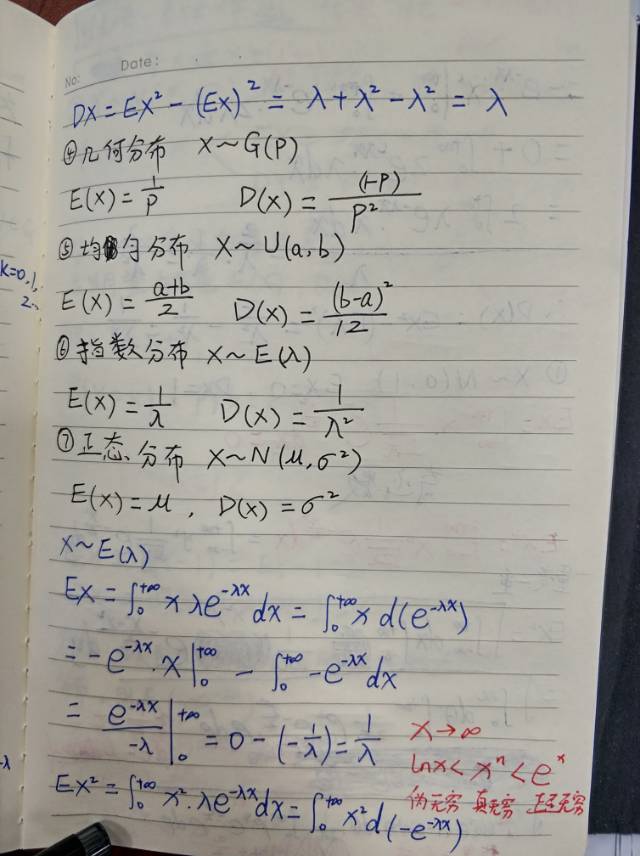 No: Date:
DX = EX² - (EX)² = λ + λ² - λ² = λ
④几何分布 X~G(P)
E(X) = 1/P D(X) = (1-P)/P²
⑤均匀分布 X~U(a,b)
K=0,1,
2..
E(X) = (a+b)/2 D(X) = (b-a)²/12
⑥指数分布 X~E(λ)
E(X) = 1/λ D(X) = 1/λ²
⑦正态分布 X~N(μ,σ²)
E(X) = μ, D(X) = σ²
X~E(λ)
EX = ∫₀^{+∞} xλe^{-λx} dx = ∫₀^{+∞} x d(e^{-λx})
= -e^{-λx}·x |₀^{+∞} - ∫₀^{+∞} -e^{-λx} dx
= e^{-λx}/-λ |₀^{+∞} = 0 - (-1/λ) = 1/λ
x→∞
lnx < xⁿ < eˣ
伪无穷 真无穷 正无穷
EX² = ∫₀^{+∞} x²·λe^{-λx} dx = ∫₀^{+∞} x² d(-e^{-λx})